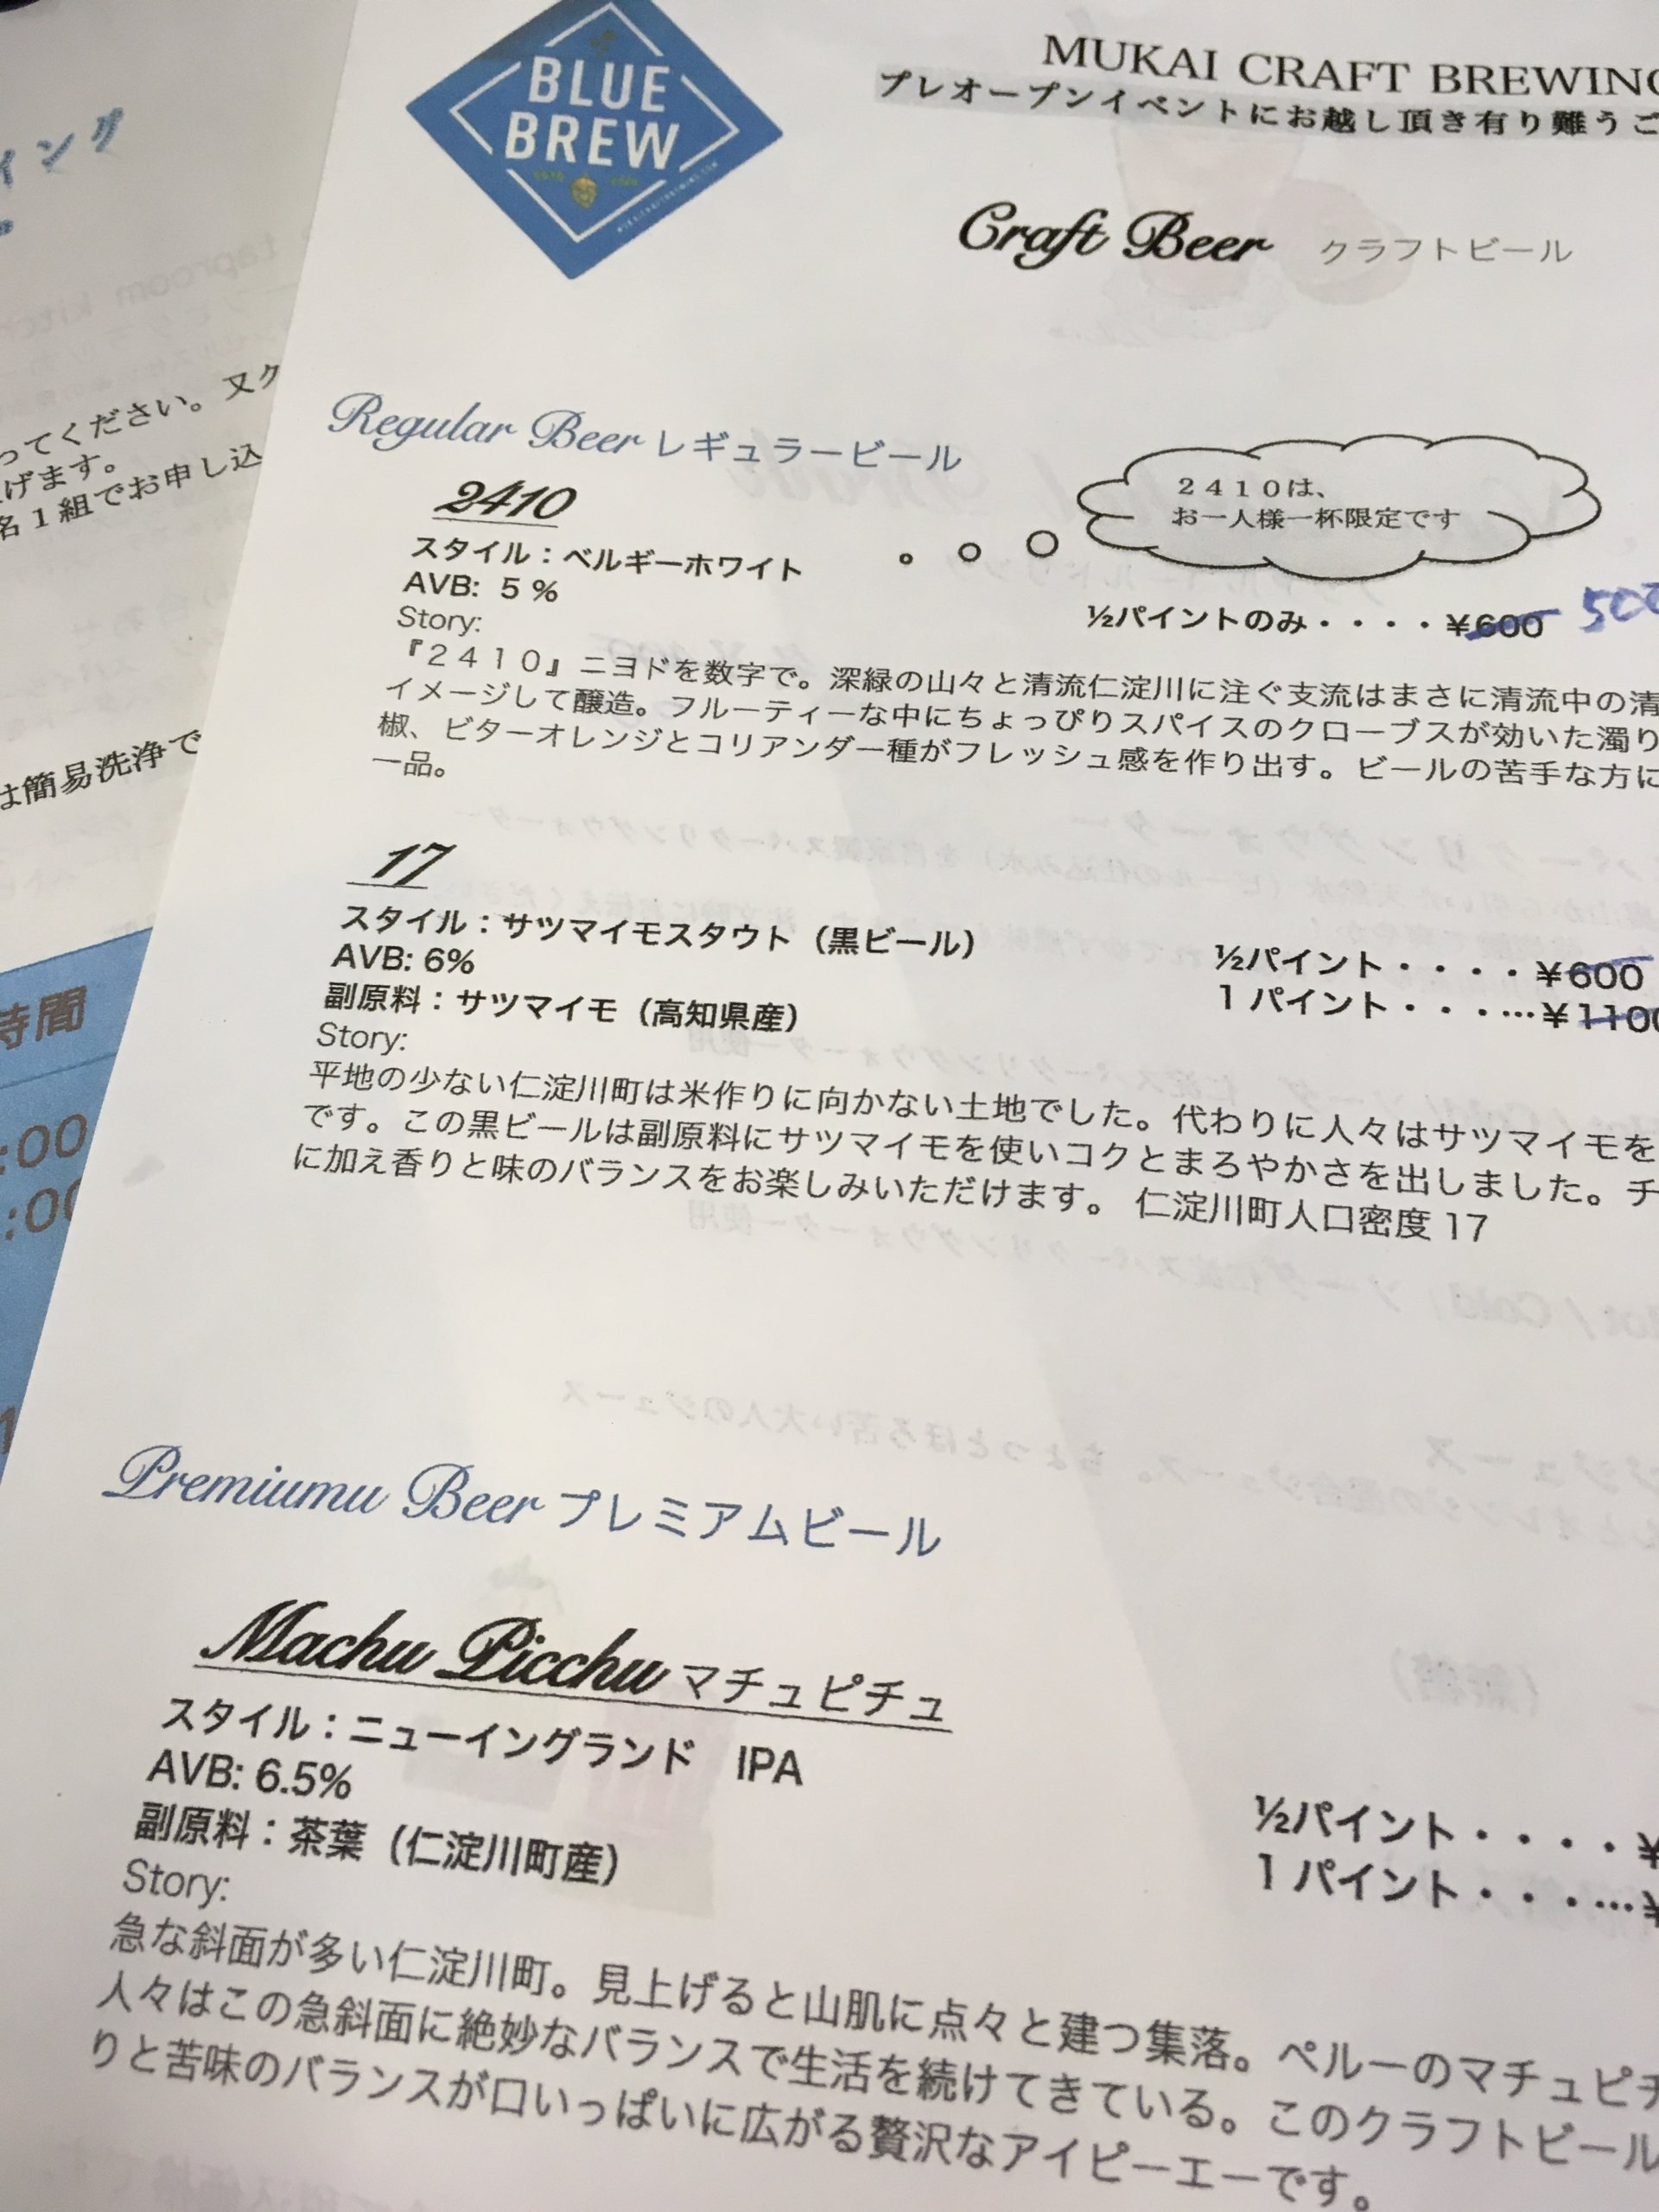 BLUE
BREW
MUKAI CRAFT BREWING
プレオープンイベントにお越し頂き有り難うご
Craft Beer クラフトビール
Regular Beer レギュラービール
2410
２４１０は、
お一人様一杯限定です
スタイル：ベルギーホワイト
AVB: 5 %
½パイントのみ・・・・¥600 500
Story:
『２４１０』ニヨドを数字で。深緑の山々と清流仁淀川に注ぐ支流はまさに清流中の清
イメージして醸造。フルーティーな中にちょっぴりスパイスのクローブスが効いた濁り
椒、ビターオレンジとコリアンダー種がフレッシュ感を作り出す。ビールの苦手な方に
一品。
17
スタイル：サツマイモスタウト（黒ビール）
AVB: 6%
½パイント・・・・¥600
副原料：サツマイモ（高知県産）
1 パイント・・・…¥1100
Story:
平地の少ない仁淀川町は米作りに向かない土地でした。代わりに人々はサツマイモを
です。この黒ビールは副原料にサツマイモを使いコクとまろやかさを出しました。チ
に加え香りと味のバランスをお楽しみいただけます。 仁淀川町人口密度 17
Premiumu Beer プレミアムビール
Machu Picchu マチュピチュ
スタイル：ニューイングランド　IPA
AVB: 6.5%
½パイント・・・・¥
副原料：茶葉（仁淀川町産）
1 パイント・・・…¥
Story:
急な斜面が多い仁淀川町。見上げると山肌に点々と建つ集落。ペルーのマチュピチ
人々はこの急斜面に絶妙なバランスで生活を続けてきている。このクラフトビール
りと苦味のバランスが口いっぱいに広がる贅沢なアイピーエーです。
イング
ってください。又ク
げます。
名１組でお申し込
は簡易洗浄で
時間
:00
:00